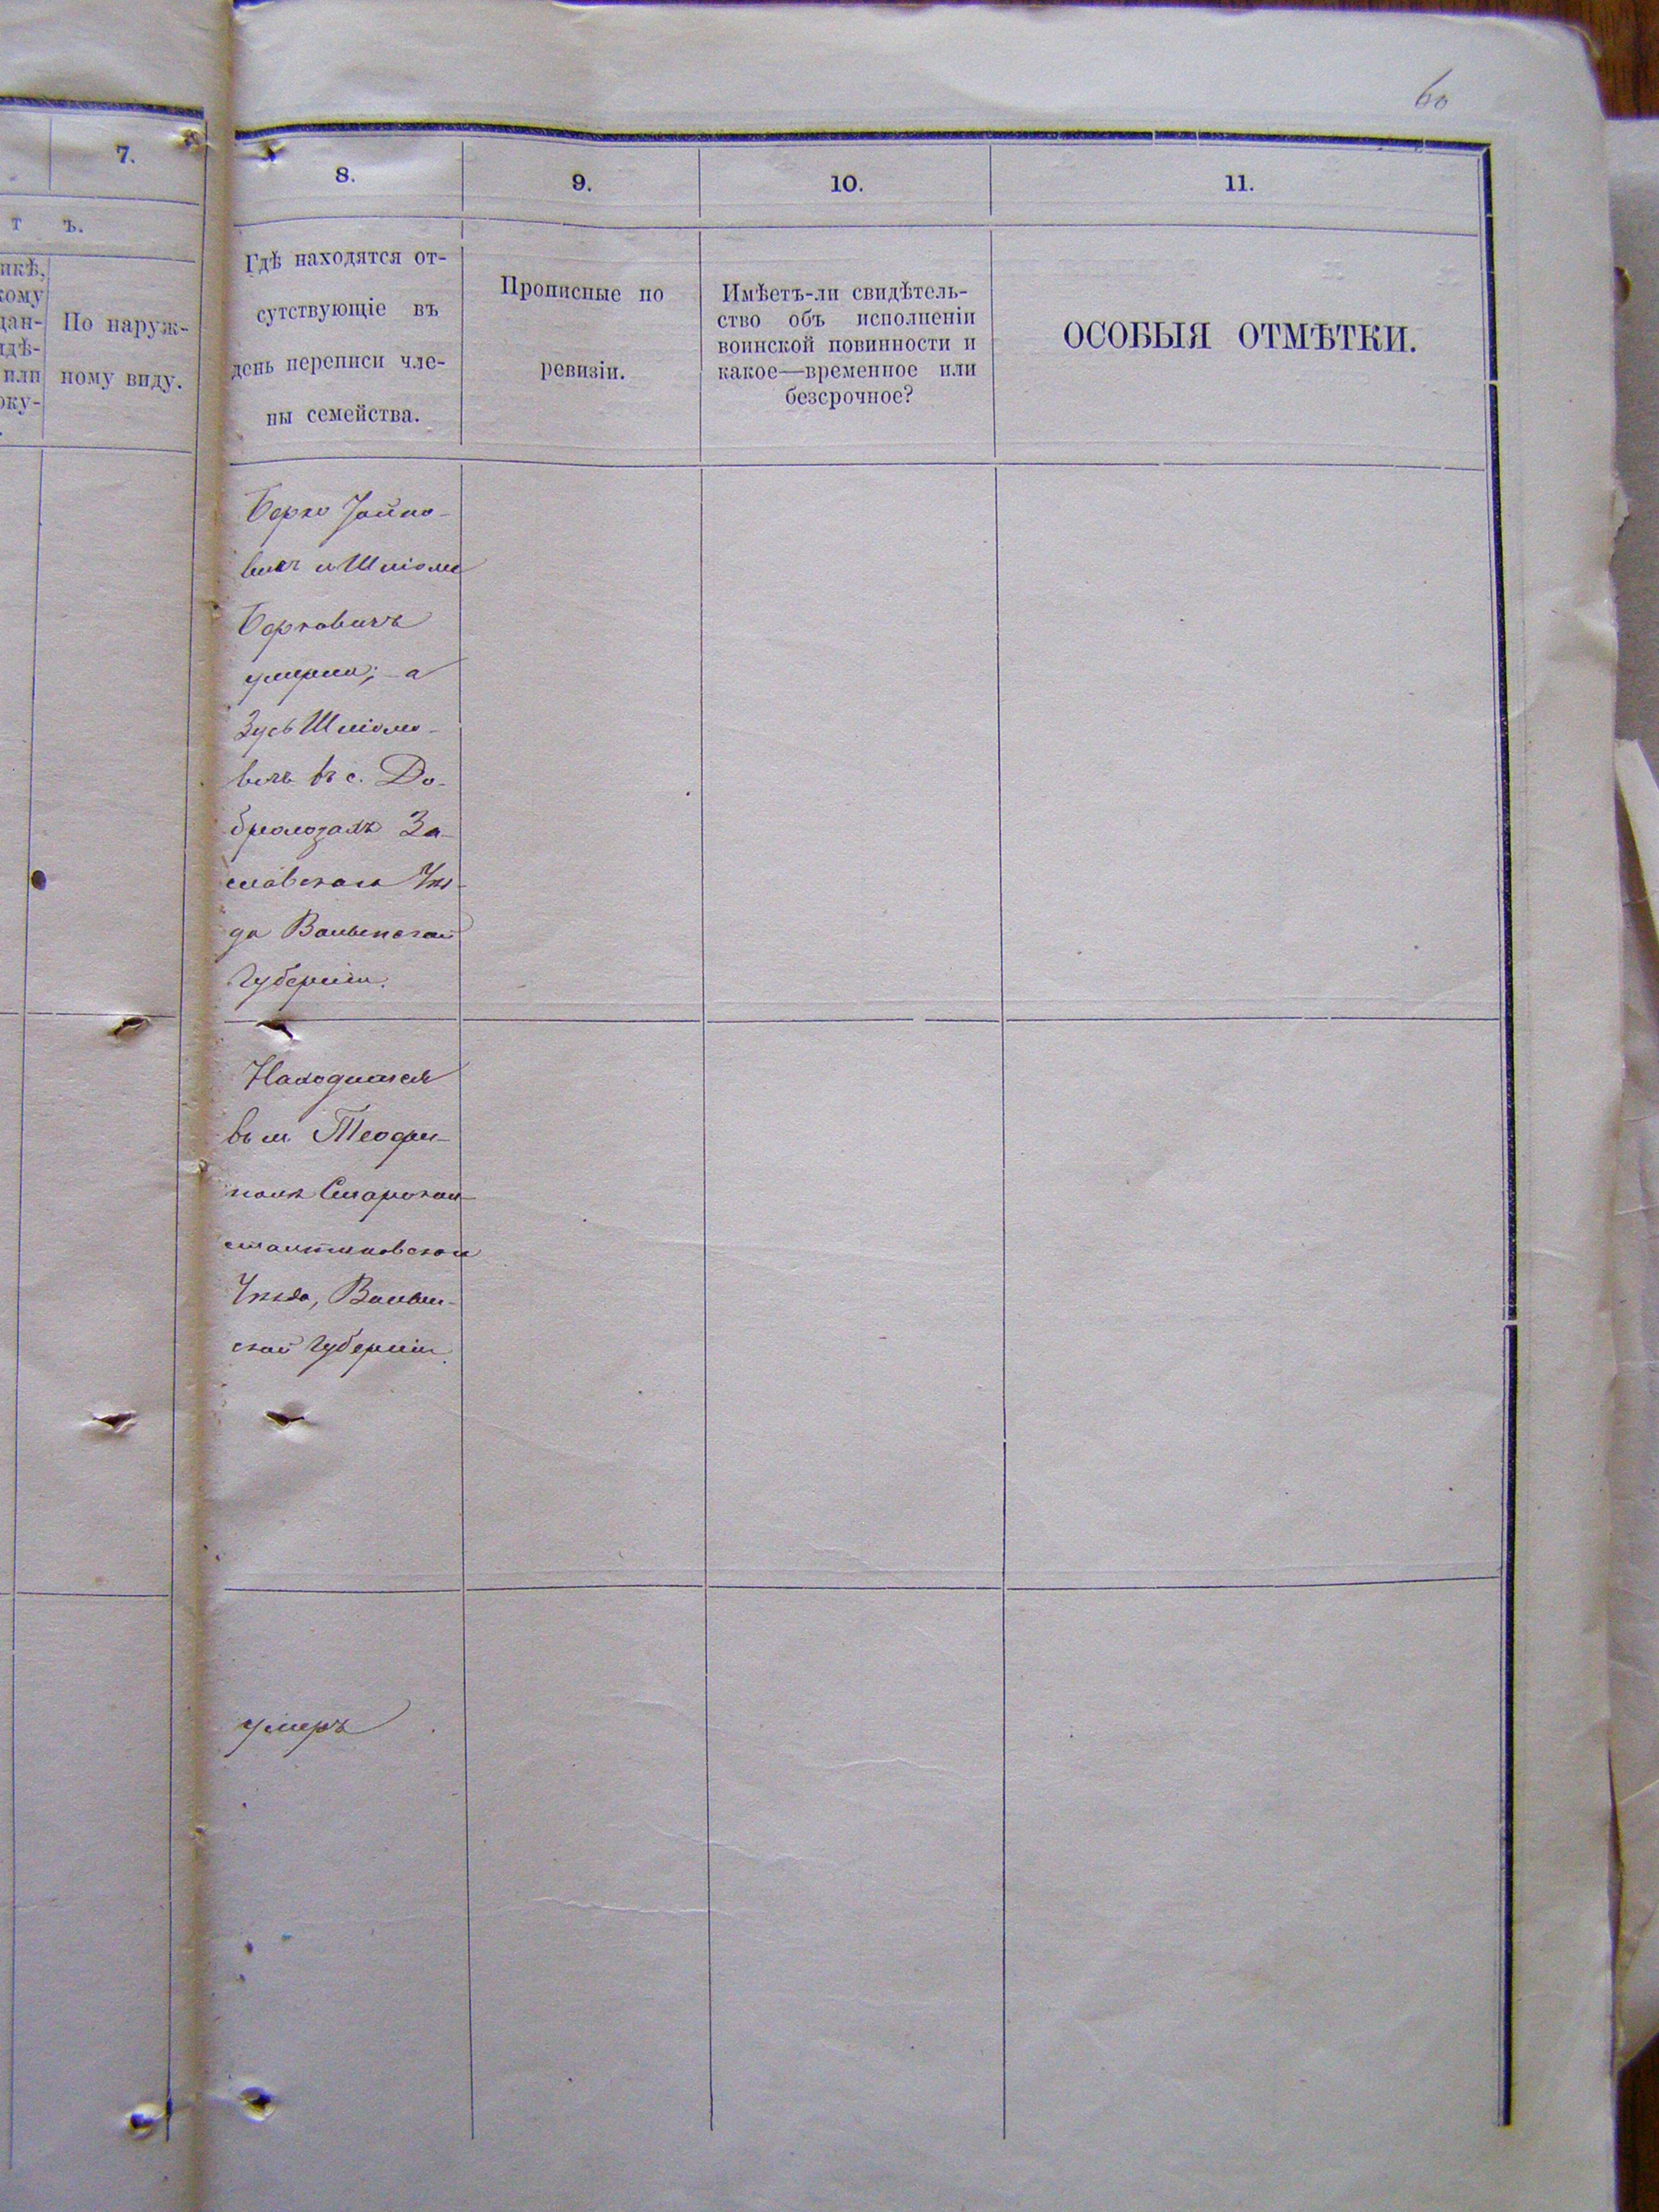 60
7.
т ъ.
По наруж-
ному виду.
8.
9.
10.
11.
Гдѣ находятся от-
сутствующіе въ
день переписи чле-
ны семейства.
Прописные по
ревизіи.
Имѣетъ-ли свидѣтель-
ство объ исполненіи
воинской повинности и
какое—временное или
безсрочное?
ОСОБЫЯ ОТМѢТКИ.
Берко
вичъ и Шліома
Берковичъ
умерли; а
Зусь Шліомо-
вичъ въ с. До-
За-
славскаго Уѣз-
да Волынской
Губерніи.
Находится
въ м. Теофи-
полѣ Старокон-
стантиновскаго
Уѣзда, Волын-
ской Губерніи.
умеръ